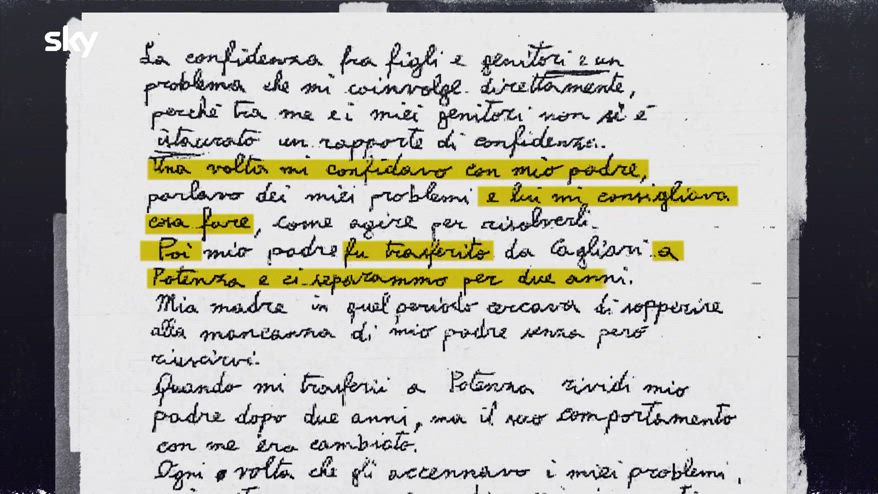 sky
La confidenza fra figli e genitori è un
problema che mi coinvolge direttamente,
perché tra me e i miei genitori non si è
istaurato un rapporto di confidenza.
Una volta mi confidavo con mio padre,
parlavo dei miei problemi e lui mi consigliava
cosa fare, come agire per risolverli.
Poi mio padre fu trasferito da Cagliari a
Potenza e ci separammo per due anni.
Mia madre in quel periodo cercava di sopperire
alla mancanza di mio padre senza però
riuscirvi.
Quando mi trasferii a Potenza rividi mio
padre dopo due anni, ma il suo comportamento
con me era cambiato.
Ogni volta che gli accennavo i miei problemi,